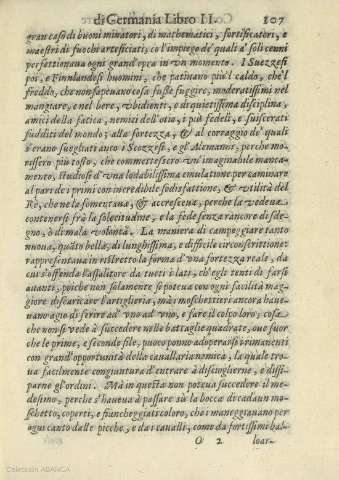 di Germania Libro II. 107
gran caso di buoni minatori, di mathematici, fortificatori, e
maestri di fuochi arteficiati, co l'impiego de' quali à soli cenni
perfettionaua ogni grand'opra in vn momento. I Suezzesi
poi, e Finnlandesi huomini, che patiuano più'l caldo, che'l
freddo, che non sapeuano cosa fusse fuggire, moderatissimi nel
mangiare, e nel bere, vbidienti, e di quietissima disciplina,
amici della fatica, nemici dell'otio, i più fedeli, e suiscerati
sudditi del mondo; alla fortezza, & al corraggio de' quali
v'erano suegliati anto i Scozzesi, e gl'Alemanni, perche mo-
rissero più tosto, che commettessero vn'imaginabile manca-
mento, studiosi d'vna lodabilissima emulatione per caminare
al par de i primi con incredibile sodisfattione, & vtilità del
Rè, che ne la fomentaua, & accresceua, perche la vedeua
contenersi frà la solecitudine, e la fede senza rancore di sde-
gno, ò di mala volontà. La maniera di campeggiare tanto
nuoua, quāto bella; di lunghissima, e difficile circonscrittione;
rappresentaua in ristretto la forma d'vna fortezza reale, da
cui s'offenda l'assalitore da tutti i lati, ch'egli tenti di farsi
auanti, poiche non solamente si poteua con ogni facilità mag-
giore discaricare l'artiglieria, mà i moschettieri ancora haue-
uano agio di ferire ad' vno ad'vjo, e fare il colpo loro; cosa
che non si vede à succedere nelle battaglie quadrate, oue fuor
che le prime, e seconde file, puoco ponno adoperarsi rimanenti
con grand'opportunità della cauallaria nemica, la quale tro-
ua facilmente congiuntura d'entrare à disciuglierne, e dissi-
parne gl'ordini. Mà in questa non poteua succedere il me-
desimo, perche s'haueua à passare sù la bocca di cadaun mo-
schetto, coperti, e fiancheggiati coloro, che i maneggiauano per
ogni canto dalle picche, e da i caualli, come da fortissimi bal-
O 2 loar-
Colección ABANCA